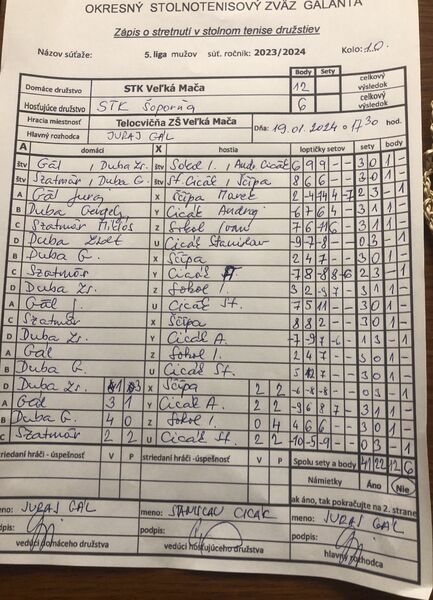 OKRESNÝ STOLNOTENISOVÝ ZVÄZ GALANTA
Zápis o stretnutí v stolnom tenise družstiev
Názov súťaže: 5. liga mužov súť. ročník: 2023/2024 Kolo: 10.
Body Sety
Domáce družstvo STK Veľká Mača 12 celkový výsledok
Hosťujúce družstvo STK Šoporňa 6 celkový výsledok
Hracia miestnosť Telocvičňa ZŠ Veľká Mača Dňa: 19.01.2024 o 17 30 hod.
Hlavný rozhodca JURAJ GÁL
A domáci X hostia loptičky setov sety body
štv Gál, Duba Zs. štv Sokol I., Andr. Cicák 6 9 9 - - 3 0 1 -
štv Szatmár, Duba G. štv St. Cicák, Ščípa 8 6 6 - - 3 0 1 -
A Gál Juraj X Ščípa Marek 2 -4 14 -4 -7 2 3 - 1
B Duba Y Cicák Andrej 6 -7 6 4 - 3 1 1 -
C Szatmár Miklós Z Sokol Ivan 7 6 -11 6 - 3 1 1 -
D Duba Zsolt U Cicák Stanislav -9 -7 -8 - - 0 3 - 1
B Duba G. X Ščípa 2 4 7 - - 3 0 1 -
C Szatmár Y Cicák -7 8 -8 8 -6 2 3 - 1
D Duba Zs. Z Sokol I. 3 2 -9 7 - 3 1 1 -
A Gál J. U Cicák St. 7 5 11 - - 3 0 1 -
C Szatmár X Ščípa 8 8 2 - - 3 0 1 -
D Duba Zs. Y Cicák A. -7 -9 7 -6 - 1 3 - 1
A Gál Z Sokol I. 2 4 7 - - 3 0 1 -
B Duba G. U Cicák St. 7 - - 3 0 1 -
D Duba Zs. X Ščípa 2 2 -6 -8 -8 - - 0 3 - 1
A Gál 3 1 Y Cicák A. 2 2 -9 6 8 7 - 3 1 1 -
B Duba G. 4 0 Z Sokol I. 0 4 4 6 6 - - 3 0 1 -
C Szatmár 2 2 U Cicák St. 2 2 -10 -5 -9 - - 0 3 - 1
striedaní hráči - úspešnosť V P striedaní hráči - úspešnosť V P Spolu sety a body 41 22 12 6
Námietky Áno Nie
ak áno, tak pokračujte na 2. strane
meno: JURAJ GÁL meno: STANISLAV CICÁK meno: JURAJ GÁL
podpis: podpis: podpis:
vedúci domáceho družstva vedúci hosťujúceho družstva hlavný rozhodca